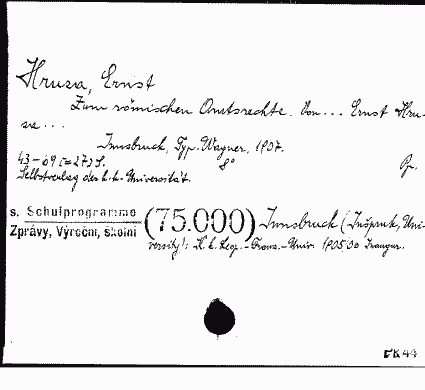 Hruza, Ernst
Zum römischen Amtsrechte. Von... Ernst Hru-
za...
Innsbruck, Typ. Wagner, 1907.
43-69 (=27) S. 8° Pp.
Selbstverlag der k.k. Universität.
s. Schulprogramme (75.000) Innsbruck (Inšpruk, Uni-
Zprávy, Výroční, školní versity): K. k. Leop.-Franz.-Univ. 1905/06 Inaugur.
ČK 44